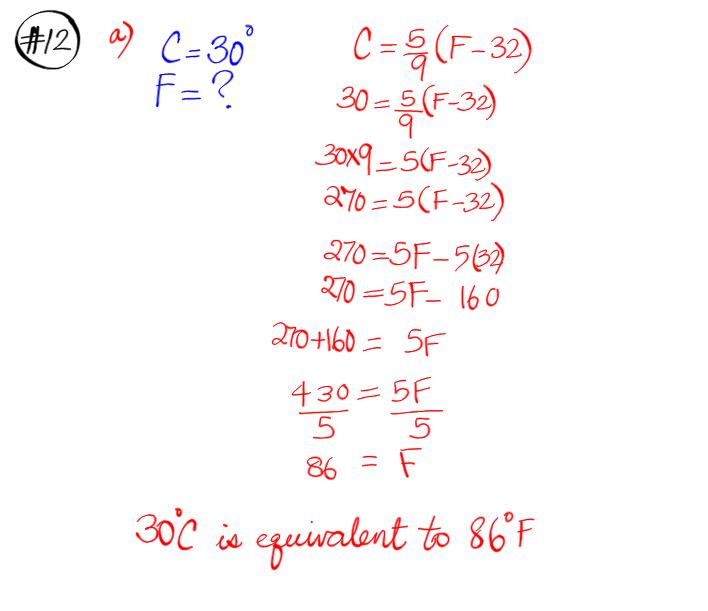 #12 a) C=30°
F=?
C=5/9(F-32)
30=5/9(F-32)
30x9=5(F-32)
270=5(F-32)
270=5F-5(32)
270=5F-160
270+160=5F
430/5=5F/5
86=F
30°C is equivalent to 86°F